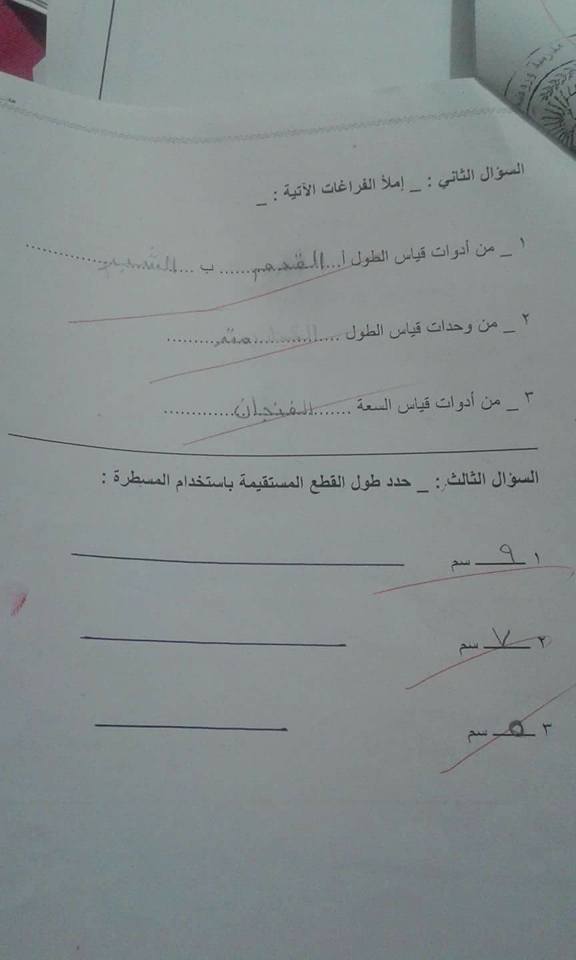 السؤال الثاني : _ إملأ الفراغات الآتية : _
١ _ من أدوات قياس الطول أ...القدم...... ب ...الشبر......
٢ _ من وحدات قياس الطول ............
٣ _ من أدوات قياس السعة ......الفنجان.........
السؤال الثالث : _ حدد طول القطع المستقيمة باستخدام المسطرة :
١ ٩ سم
٢ ٧ سم
٣ ٥ سم